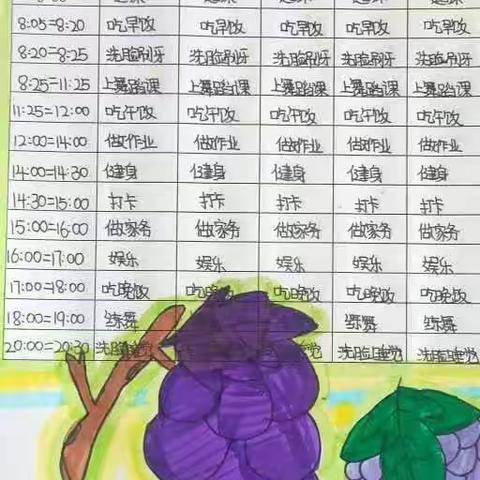 8:05=8:20 吃早饭 吃早饭 吃早饭 吃早饭 吃早饭
8:20=8:25 洗脸刷牙 洗脸刷牙 洗脸刷牙 洗脸刷牙 洗脸刷牙
8:25=11:25 上舞蹈课 上舞蹈课 上舞蹈课 上舞蹈课 上舞蹈课
11:25=12:00 吃午饭 吃午饭 吃午饭 吃午饭 吃午饭
12:00=14:00 做作业 做作业 做作业 做作业 做作业
14:00=14:30 健身 健身 健身 健身 健身
14:30=15:00 打卡 打卡 打卡 打卡 打卡
15:00=16:00 做家务 做家务 做家务 做家务 做家务
16:00=17:00 娱乐 娱乐 娱乐 娱乐 娱乐
17:00=18:00 吃晚饭 吃晚饭 吃晚饭 吃晚饭 吃晚饭
18:00=19:00 练舞 练舞 练舞
20:00=20:30 洗脸睡觉 洗脸睡觉 洗脸睡觉